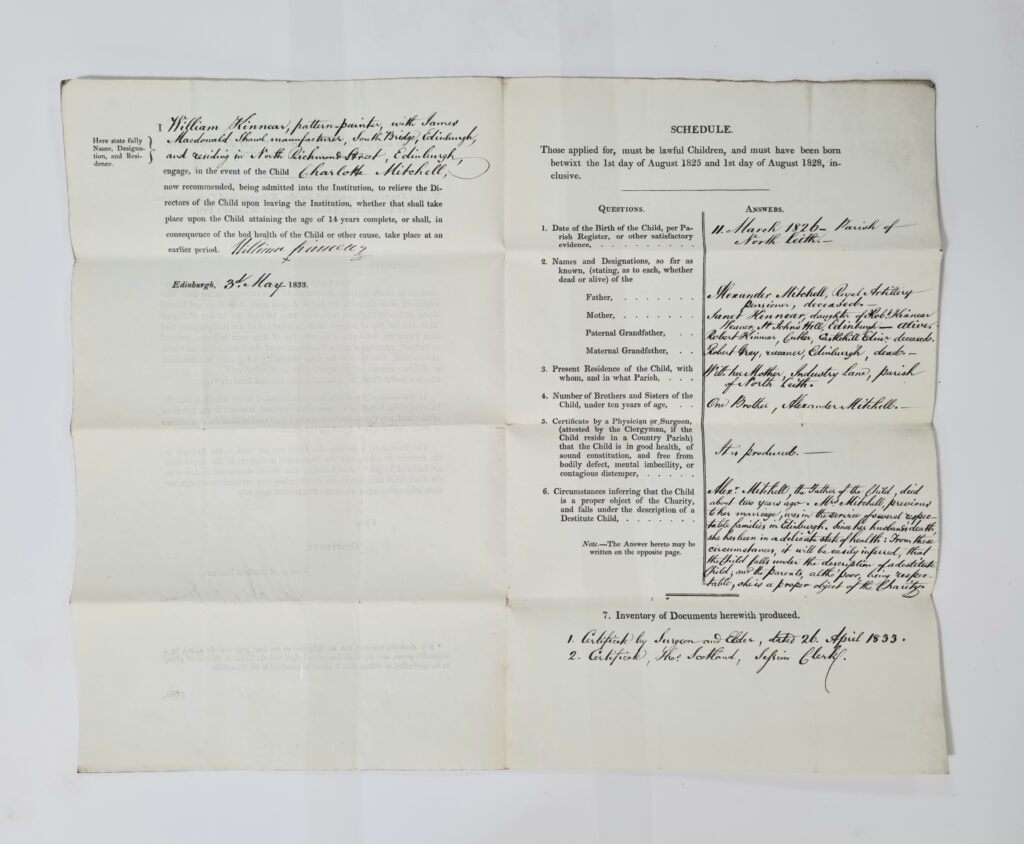 Here state fully
Name, Designa-
tion, and Resi-
dence.
I William Kinnear, pattern-painter, with James
Macdonald Shawl manufacturer, South Bridge, Edinburgh,
and residing in North Richmond Street, Edinburgh,
engage, in the event of the Child Charlotte Mitchell,
now recommended, being admitted into the Institution, to relieve the Di-
rectors of the Child upon leaving the Institution, whether that shall take
place upon the Child attaining the age of 14 years complete, or shall, in
consequence of the bad health of the Child or other cause, take place at an
earlier period. William Kinnear
Edinburgh, 3d. May 1833.
SCHEDULE.
Those applied for, must be lawful Children, and must have been born
betwixt the 1st day of August 1825 and 1st day of August 1828, in-
clusive.
QUESTIONS. ANSWERS.
1. Date of the Birth of the Child, per Pa-
rish Register, or other satisfactory
evidence,
11. March 1826 — Parish of
North Leith. —
2. Names and Designations, so far as
known, (stating, as to each, whether
dead or alive) of the
Father,
Alexander Mitchell, Royal Artillery
pensioner, deceased. —
Mother,
Janet Kinnear, daughter of Robt. Kinnear
Weaver, St John's Hill, Edinburgh — alive.
Paternal Grandfather,
Robert Kinnear, Cutler, Castlehill Edinr. deceased.
Maternal Grandfather,
Robert Gray, weaver, Edinburgh, dead. —
3. Present Residence of the Child, with
whom, and in what Parish,
With her Mother, Industry Lane, parish
of North Leith.
4. Number of Brothers and Sisters of the
Child, under ten years of age,
One Brother, Alexander Mitchell. —
5. Certificate by a Physician or Surgeon,
(attested by the Clergyman, if the
Child reside in a Country Parish)
that the Child is in good health, of
sound constitution, and free from
bodily defect, mental imbecility, or
contagious distemper,
It is produced. —
6. Circumstances inferring that the Child
is a proper object of the Charity,
and falls under the description of a
Destitute Child,
Note.—The Answer hereto may be
written on the opposite page.
Alexr. Mitchell, the Father of the Child, died
about two years ago. Mrs Mitchell, previous
to her marriage, was in the service of several respec-
table families in Edinburgh. Since her husband's death,
she has been in a delicate state of health: From these
circumstances, it will be easily inferred, that
the Child falls under the description of a destitute
Child; and the parents, altho' poor, being respec-
table, she is a proper object of the Charity.
7. Inventory of Documents herewith produced.
1. Certificate by Surgeon and Elder, dated 26. April 1833.
2. Certificate, Thos. Scotland, Session Clerk.